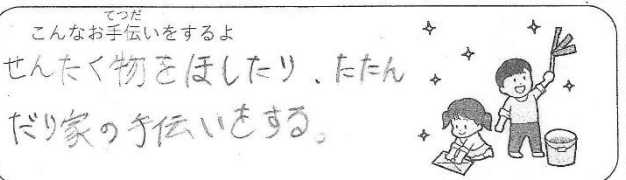 てつだ
こんなお手伝いをするよ
せんたく物をほしたり、たたん
だり家の手伝いをする。